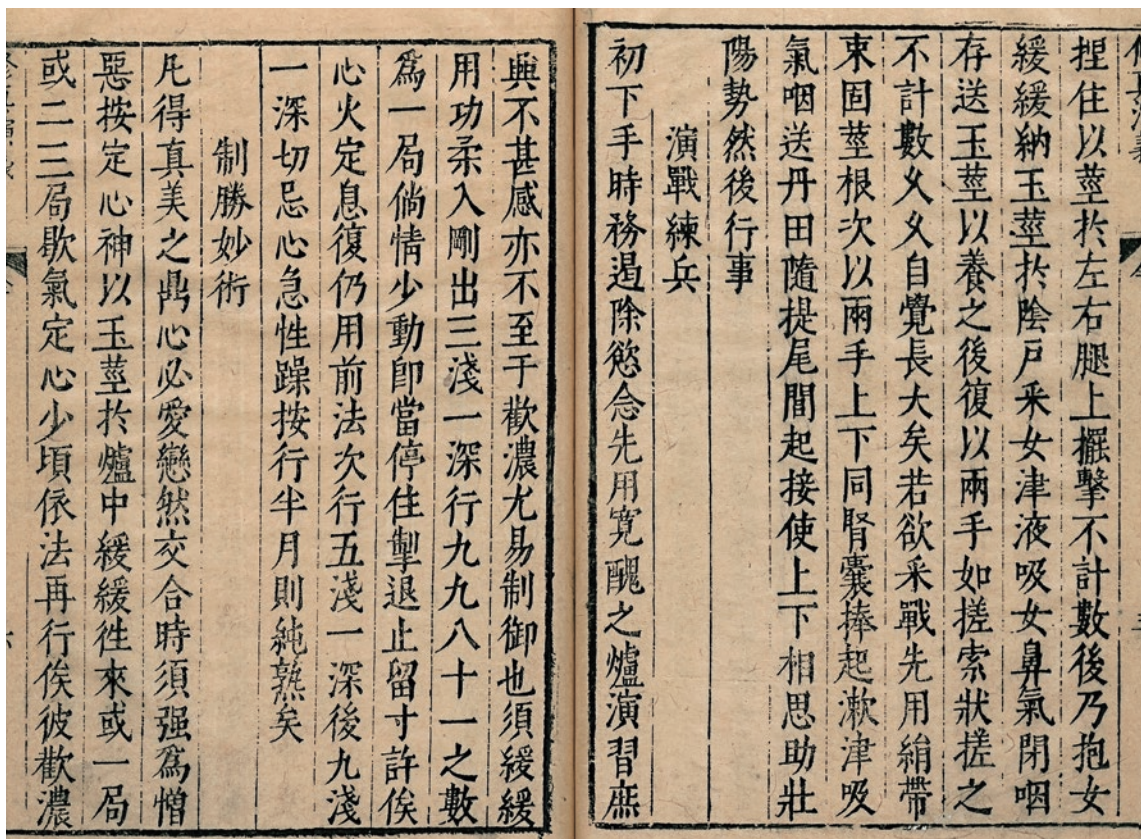 捏住以莖於左右腿上擺擊不計數後乃抱女
緩緩納玉莖扵陰戶采女津液吸女鼻氣閉咽
存送玉莖以養之後復以兩手如搓索狀搓之
不計數久久自覺長大矣若欲采戰先用絹帶
束固莖根次以兩手上下同腎囊捧起漱津吸
氣咽送丹田隨提尾閭起接使上下相思助壯
陽勢然後行事
演戰練兵
初下手時務遏除慾念先用寬醜之爐演習庶
興不甚感亦不至于歡濃尤易制御也須緩緩
用功柔入剛出三淺一深行九九八十一之數
為一局倘情少動即當停住掣退止留寸許俟
心火定息復仍用前法次行五淺一深後九淺
一深切忌心急性躁按行半月則純熟矣
制勝妙術
凡得真美之鼎心必愛戀然交合時須强為憎
惡按定心神以玉莖扵爐中緩緩徃來或一局
或二三局歇氣定心少頃依法再行俟彼歡濃